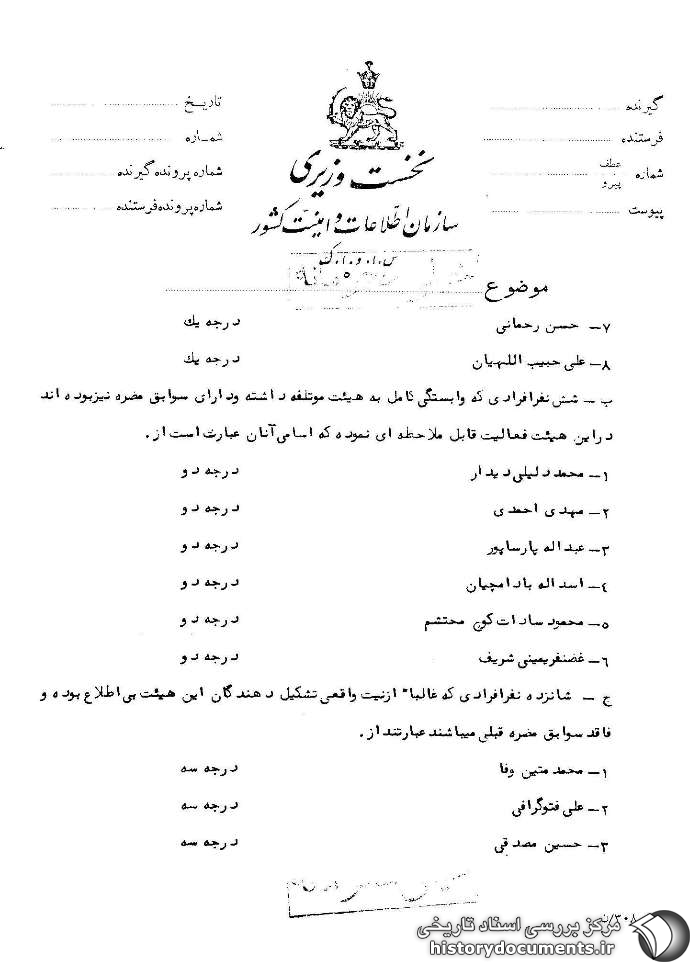 گیرنده
فرستنده
شماره عطف پیرو
پیوست
تاریخ
شماره
شماره پرونده گیرنده
شماره پرونده فرستنده
نخست وزیری
سازمان اطلاعات و امنیت کشور
س.ا.و.ا.ک
موضوع
۷- حسن رحمانی درجه یك
۸- علی حبیب اللهیان درجه یك
ب- شش نفر افرادی که وابستگی کامل به هیئت موتلفه داشته ودارای سوابق مضره نیزبوده اند
دراین هیئت فعالیت قابل ملاحظه ای نموده که اسامی آنان عبارت است از.
۱- محمد دلیلی دیدار درجه دو
۲- مهدی احمدی درجه دو
۳- عبداله پارساپور درجه دو
٤- اسداله بادامچیان درجه دو
۵- محمود سادات کوچ محتشم درجه دو
٦- غضنفریمینی شریف درجه دو
ج - شانزده نفرافرادی که غالبا" ازنیت واقعی تشکیل دهندگان این هیئت بی اطلاع بوده و
فاقد سوابق مضره قبلی میباشند عبارتند از.
۱- محمد متین وفا درجه سه
۲- علی فتوگرافی درجه سه
۳- حسین مصدقی درجه سه
مرکز بررسی اسناد تاریخی
historydocuments.ir